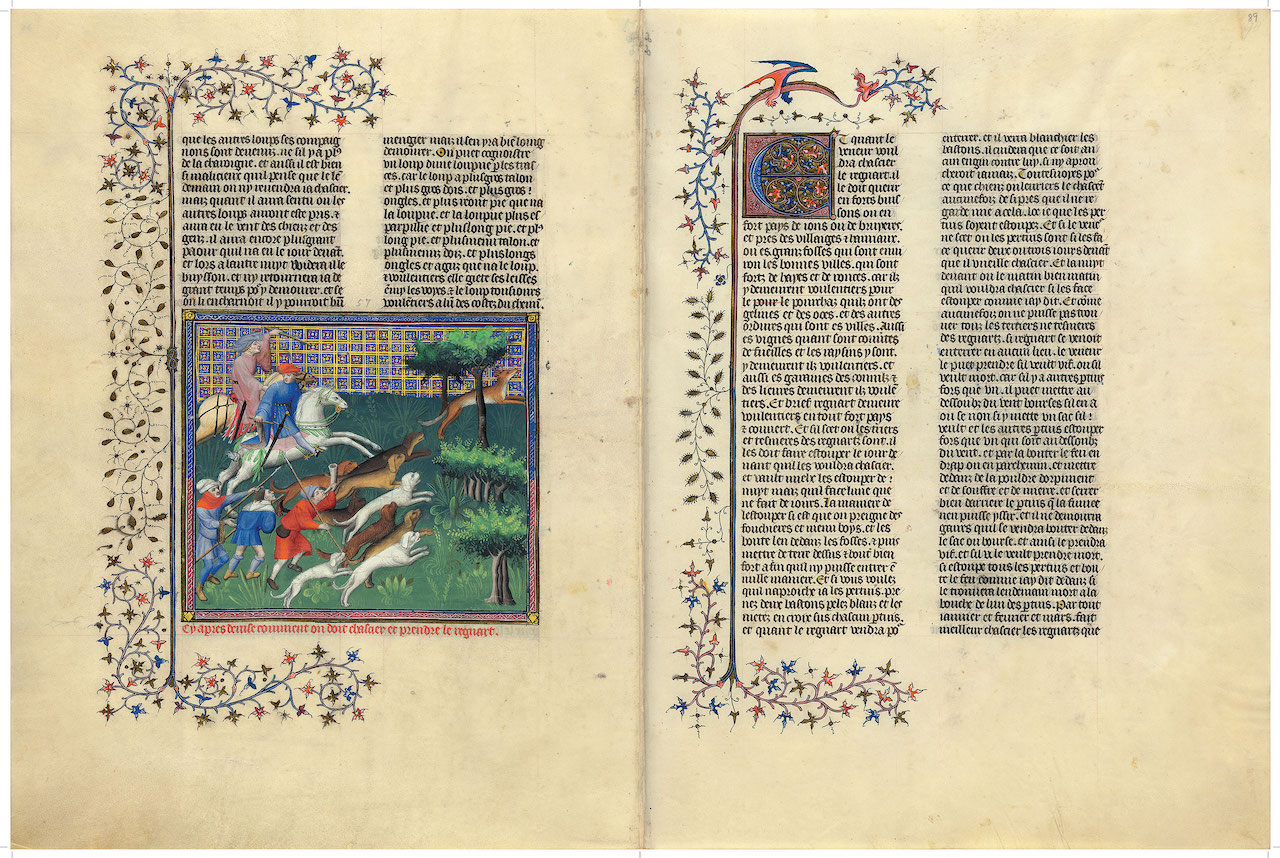 que les autres loups ses compaig
nons sont devenuz. ne sil y a pl9
de la charoigne. et aussi il est bien
si malicieux quil pense que le lē
demain on ny revendra ia chascier.
maiz quant il aura sentu ou les
autres loups auront este pris. et
aura eu le vent des chienz et des
genz. il aura encore plusgrant
paour quil na eu le iour devāt.
et lors a lautre nuyt vuidera il le
buysson. et ny retournera ia de
grant temps po2 y demourer. et se
on li encharnoit il y pourroit biē
mengier maiz il sen yra biē loing
demourer. On puet cognoistre
un loup dune loupve p les tras
ces. car le loup a plusgros talon
et plus gros dois. et plusgros
ongles. et plus ront pie que na
la loupve. et la loupve plus es
parpillie et pluslong pie. et pl9
long pie. et plusmenu talon. et
plusmenuz doiz. et pluslongs
ongles et aguz que na le loup.
voulentiers elle giete ses leisses
ēmy les voyes. et le loup tousiours
voulētiers a lun des costez du chemī.
Cy apres devise comment on doit chascier et prendre le regnart.
89
Et quant le
veneur voul
dra chascier
le regnart. il
le doit querir
en fors buis
sons ou en
fort pays de ions ou de bruyeres.
et pres des villaiges et hamiaux.
ou es granz fosses qui sont envi
ron les bonnes villes. qui sont
fortz de hayes et de ronces. car ilz
y demeurent voulentiers pour
le pour le pourchaz quilz ont des
gelines et des oces. et des autres
ordures qui sont es villes. Aussi
es vignes quant sont couvertes
de fueilles et les raysins y sont.
y demeurent ilz voulentiers. et
aussi es garannes des connilz et
des lievres demeurent ilz voulē
tiers. Et brief regnart demeure
voulentiers en tout fort pays
et couvert. Et sil scet ou les tiers
et tesnieres des regnartz sont. il
les doit faire estouper le iour de
nant quil les vouldra chascier.
et vault mielx les estouper de
nuyt maiz quil face lune que
ne fait de iours. La maniere de
lestouper si est que on preigne des
fouchieres et menu boys. et les
boute len dedanz les fosses. et puis
mettre de terre dessus et tout bien
fort a fin quil ny puisse entrer ē
nulle maniere. Et si vous voulez
quil naproche ia les pertuis. pre
nez deux bastons pelez blanz et les
metez en croiz sus chascun ptuis.
et quant le regnart vendra po2
entrer. et il verra blanchier les
bastons. il cuidera que ce soit au
cun engin contre luy. si ny aprou
cheroit iamaiz. Toutesvoyes po2
ce que chienz ou levriers le chascēt
aucunefoiz de si pres que il ne re
garde mie a cela. loe ie que les per
tuis soyent estoupez. Et si le vene2
ne scet ou les pertuis sont si les fa
ce querir deux ou trois iours devāt
que il vueille chascier. Et la nuyt
devant ou le matin bien matin
quil vouldra chascier si les face
estouper comme iay dit. Et cōme
aucunefoiz on ne puisse pas trou
ver touz les terriers ne tesnieres
des regnartz. si regnart se venoit
enterrer en aucun lieu. le veneur
le puet prendre sil veult vif. ou sil
veult mort. car sil y a autres ptuis
fors que un. il puet mettre au
dessoubz du vent bourses sil en a
ou se non si y mette un sac sil
veult et les autres ptuis estouper
fors que un qui soit au dessoubz
du vent. et par la bouter le feu en
drap ou en parchemin. et mettre
dedanz de la pouldre dorpiment
et de souffre et de mierre. et serrer
bien darriere le ptuis q̄ la fumee
nen puisse yssir. et il ne demourra
gaires quil se vendra bouter dedanz
le sac ou bourse. et ainsi le prendra
vif. et sil le veult prendre mort.
si estoupe tous les pertuis et bou
te le feu comme iay dit dedanz si
le trouvera lendemain mort a la
bouche de lun des ptuis. Par tout
ianvier et fevrier et mars. fait
meilleur chascier les regnartz que